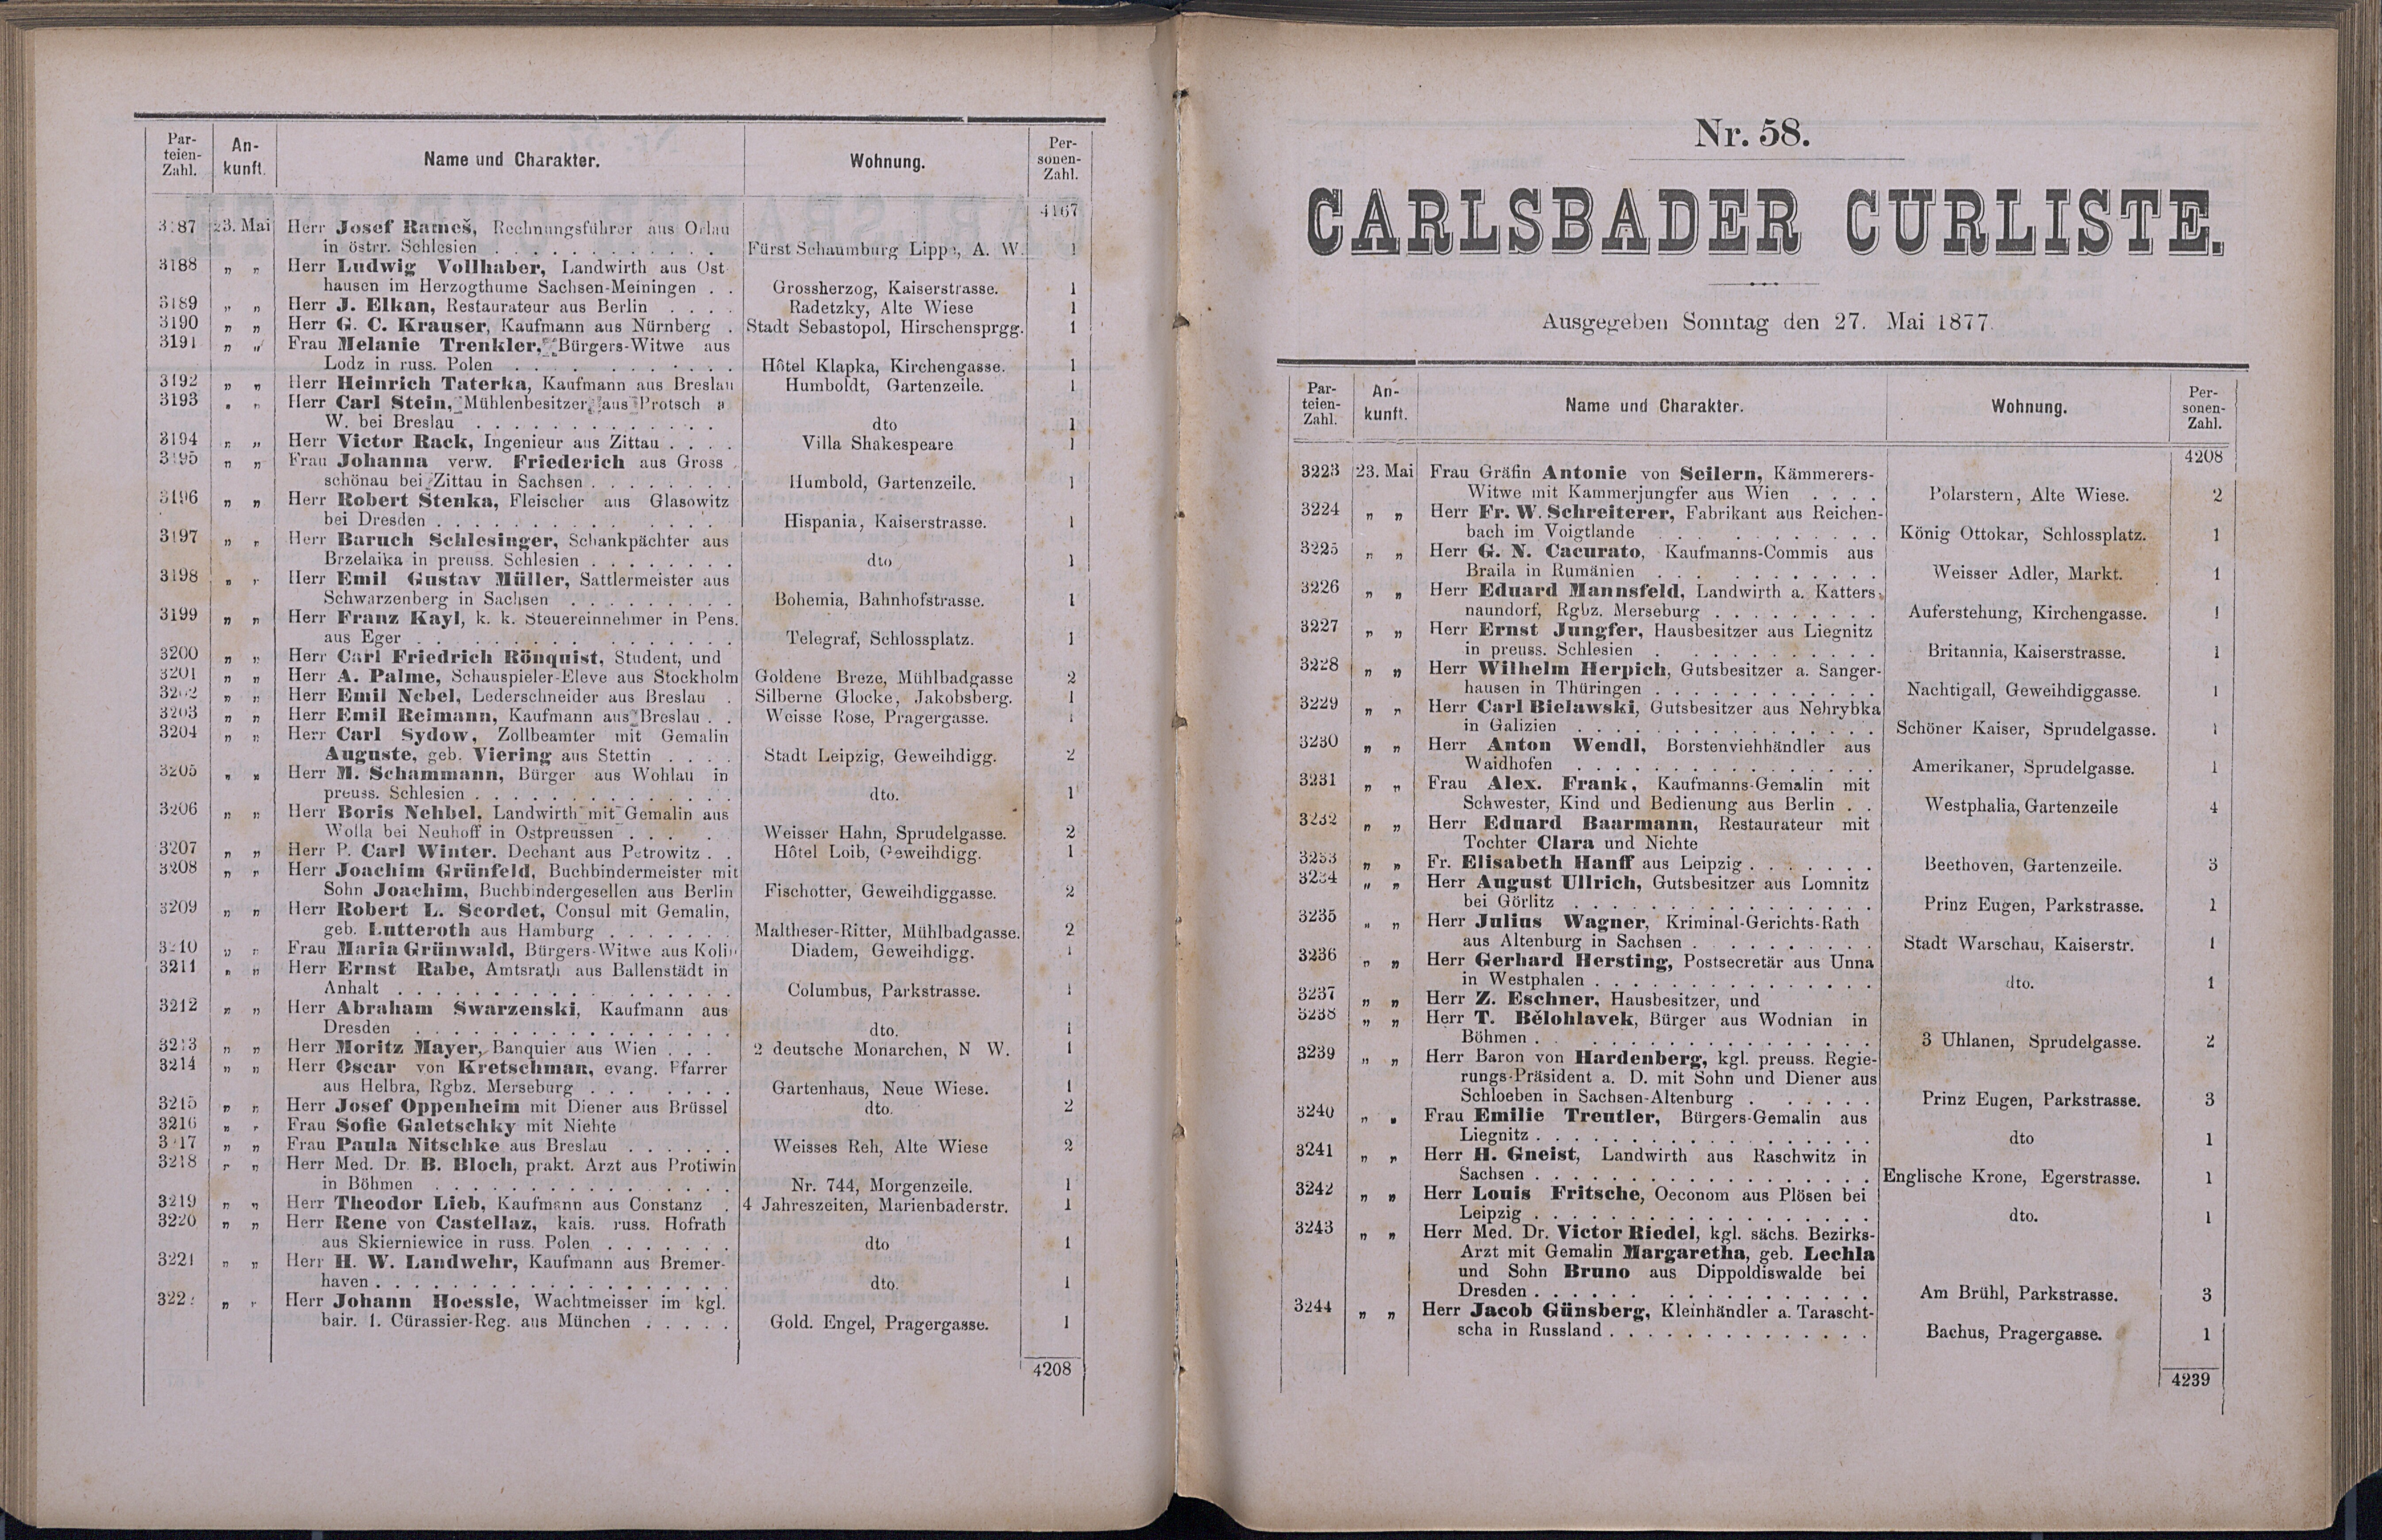 Par-
teien-
Zahl.
An-
kunft.
Name und Charakter.
Wohnung.
Per-
sonen-
Zahl.
4167
3187 23. Mai Herr Josef Rameš, Rechnungsführer aus Orlau
in österr. Schlesien . . . Fürst Schaumburg Lippe, A. W. 1
3188 „ „ Herr Ludwig Vollhaber, Landwirth aus Ost
hausen im Herzogthume Sachsen-Meiningen . . Grossherzog, Kaiserstrasse. 1
3189 „ „ Herr J. Elkan, Restaurateur aus Berlin . . . . Radetzky, Alte Wiese 1
3190 „ „ Herr G. C. Krauser, Kaufmann aus Nürnberg . Stadt Sebastopol, Hirschensprgg. 1
3191 „ „ Frau Melanie Trenkler, Bürgers-Witwe aus
Lodz in russ. Polen . . . Hôtel Klapka, Kirchengasse. 1
3192 „ „ Herr Heinrich Taterka, Kaufmann aus Breslau Humboldt, Gartenzeile. 1
3193 „ „ Herr Carl Stein, Mühlenbesitzer, aus Protsch a
W. bei Breslau . . . dto 1
3194 „ „ Herr Victor Rack, Ingenieur aus Zittau . . . . Villa Shakespeare 1
3195 „ „ Frau Johanna verw. Friederich aus Gross
schönau bei Zittau in Sachsen . . . Humbold, Gartenzeile. 1
3196 „ „ Herr Robert Stenka, Fleischer aus Glasowitz
bei Dresden . . . Hispania, Kaiserstrasse. 1
3197 „ „ Herr Baruch Schlesinger, Schankpächter aus
Brzelaika in preuss. Schlesien . . . dto 1
3198 „ „ Herr Emil Gustav Müller, Sattlermeister aus
Schwarzenberg in Sachsen . . . Bohemia, Bahnhofstrasse. 1
3199 „ „ Herr Franz Kayl, k. k. Steuereinnehmer in Pens.
aus Eger . . . Telegraf, Schlossplatz. 1
3200 „ „ Herr Carl Friedrich Rönquist, Student, und
3201 „ „ Herr A. Palme, Schauspieler-Eleve aus Stockholm Goldene Breze, Mühlbadgasse 2
3202 „ „ Herr Emil Nebel, Lederschneider aus Breslau . Silberne Glocke, Jakobsberg. 1
3203 „ „ Herr Emil Reimann, Kaufmann aus Breslau . . Weisse Rose, Pragergasse. 1
3204 „ „ Herr Carl Sydow, Zollbeamter mit Gemalin
Auguste, geb. Viering aus Stettin . . . . Stadt Leipzig, Geweihdigg. 2
3205 „ „ Herr M. Schammann, Bürger aus Wohlau in
preuss. Schlesien . . . dto. 1
3206 „ „ Herr Boris Nehbel, Landwirth mit Gemalin aus
Wolla bei Neuhoff in Ostpreussen . . . Weisser Hahn, Sprudelgasse. 2
3207 „ „ Herr P. Carl Winter, Dechant aus Petrowitz . . Hôtel Loib, Geweihdigg. 1
3208 „ „ Herr Joachim Grünfeld, Buchbindermeister mit
Sohn Joachim, Buchbindergesellen aus Berlin Fischotter, Geweihdiggasse. 2
3209 „ „ Herr Robert L. Scordet, Consul mit Gemalin,
geb. Lutteroth aus Hamburg . . . Maltheser-Ritter, Mühlbadgasse. 2
3210 „ „ Frau Maria Grünwald, Bürgers-Witwe aus Kolin Diadem, Geweihdigg. 1
3211 „ „ Herr Ernst Rabe, Amtsrath aus Ballenstädt in
Anhalt . . . Columbus, Parkstrasse. 1
3212 „ „ Herr Abraham Swarzenski, Kaufmann aus
Dresden . . . dto. 1
3213 „ „ Herr Moritz Mayer, Banquier aus Wien . . . 2 deutsche Monarchen, N W. 1
3214 „ „ Herr Oscar von Kretschman, evang. Pfarrer
aus Helbra, Rgbz. Merseburg . . . Gartenhaus, Neue Wiese. 1
3215 „ „ Herr Josef Oppenheim mit Diener aus Brüssel dto. 2
3216 „ „ Frau Sofie Galetschky mit Nichte
3217 „ „ Frau Paula Nitschke aus Breslau . . . Weisses Reh, Alte Wiese 2
3218 „ „ Herr Med. Dr. B. Bloch, prakt. Arzt aus Protiwin
in Böhmen . . . Nr. 744, Morgenzeile. 1
3219 „ „ Herr Theodor Lieb, Kaufmann aus Constanz . 4 Jahreszeiten, Marienbaderstr. 1
3220 „ „ Herr Rene von Castellaz, kais. russ. Hofrath
aus Skierniewice in russ. Polen . . . dto 1
3221 „ „ Herr H. W. Landwehr, Kaufmann aus Bremer-
haven . . . dto. 1
322 „ „ Herr Johann Hoessle, Wachtmeisser im kgl.
bair. 1. Cürassier-Reg. aus München . . . . . Gold. Engel, Pragergasse. 1
4208
Nr. 58.
CARLSBADER CURLISTE.
Ausgegeben Sonntag den 27. Mai 1877.
Par-
teien-
Zahl.
An-
kunft.
Name und Charakter.
Wohnung.
Per-
sonen-
Zahl.
4208
3223 23. Mai Frau Gräfin Antonie von Seilern, Kämmerers-
Witwe mit Kammerjungfer aus Wien . . . . Polarstern, Alte Wiese. 2
3224 „ „ Herr Fr. W. Schreiterer, Fabrikant aus Reichen-
bach im Voigtlande . . . König Ottokar, Schlossplatz. 1
3225 „ „ Herr G. N. Cacurato, Kaufmanns-Commis aus
Braila in Rumänien . . . Weisser Adler, Markt. 1
3226 „ „ Herr Eduard Mannsfeld, Landwirth a. Katters-
naundorf, Rgbz. Merseburg . . . Auferstehung, Kirchengasse. 1
3227 „ „ Herr Ernst Jungfer, Hausbesitzer aus Liegnitz
in preuss. Schlesien . . . Britannia, Kaiserstrasse. 1
3228 „ „ Herr Wilhelm Herpich, Gutsbesitzer a. Sanger-
hausen in Thüringen . . . Nachtigall, Geweihdiggasse. 1
3229 „ „ Herr Carl Bielawski, Gutsbesitzer aus Nehrybka
in Galizien . . . Schöner Kaiser, Sprudelgasse. 1
3230 „ „ Herr Anton Wendl, Borstenviehhändler aus
Waidhofen . . . Amerikaner, Sprudelgasse. 1
3231 „ „ Frau Alex. Frank, Kaufmanns-Gemalin mit
Schwester, Kind und Bedienung aus Berlin . . Westphalia, Gartenzeile 4
3232 „ „ Herr Eduard Baarmann, Restaurateur mit
Tochter Clara und Nichte
3233 „ „ Fr. Elisabeth Hanff aus Leipzig . . . Beethoven, Gartenzeile. 3
3234 „ „ Herr August Ullrich, Gutsbesitzer aus Lomnitz
bei Görlitz . . . Prinz Eugen, Parkstrasse. 1
3235 „ „ Herr Julius Wagner, Kriminal-Gerichts-Rath
aus Altenburg in Sachsen . . . Stadt Warschau, Kaiserstr. 1
3236 „ „ Herr Gerhard Hersting, Postsecretär aus Unna
in Westphalen . . . dto. 1
3237 „ „ Herr Z. Eschner, Hausbesitzer, und
3238 „ „ Herr T. Bělohlavek, Bürger aus Wodnian in
Böhmen . . . 3 Uhlanen, Sprudelgasse. 2
3239 „ „ Herr Baron von Hardenberg, kgl. preuss. Regie-
rungs-Präsident a. D. mit Sohn und Diener aus
Schloeben in Sachsen-Altenburg . . . Prinz Eugen, Parkstrasse. 3
3240 „ „ Frau Emilie Treutler, Bürgers-Gemalin aus
Liegnitz . . . dto 1
3241 „ „ Herr H. Gneist, Landwirth aus Raschwitz in
Sachsen . . . Englische Krone, Egerstrasse. 1
3242 „ „ Herr Louis Fritsche, Oeconom aus Plösen bei
Leipzig . . . dto. 1
3243 „ „ Herr Med. Dr. Victor Riedel, kgl. sächs. Bezirks-
Arzt mit Gemalin Margaretha, geb. Lechla
und Sohn Bruno aus Dippoldiswalde bei
Dresden . . . Am Brühl, Parkstrasse. 3
3244 „ „ Herr Jacob Günsberg, Kleinhändler a. Tarascht-
scha in Russland . . . Bachus, Pragergasse. 1
4239